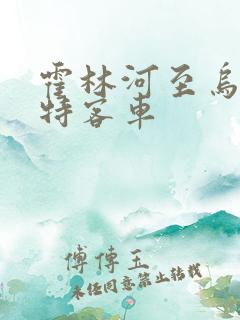 霍林河至乌
特客车
傅传玉
未经同意禁止转载